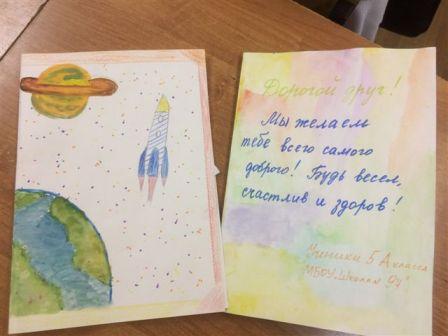 Дорогой друг!
Мы желаем
тебе всего самого
доброго! Будь весел,
счастлив и здоров!
Ученики 5 А класса
МБОУ „Школы